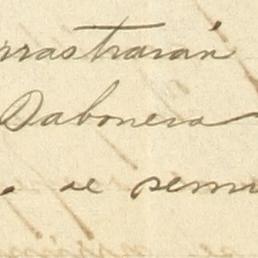 rrastrarán
Sabonera
. se remi